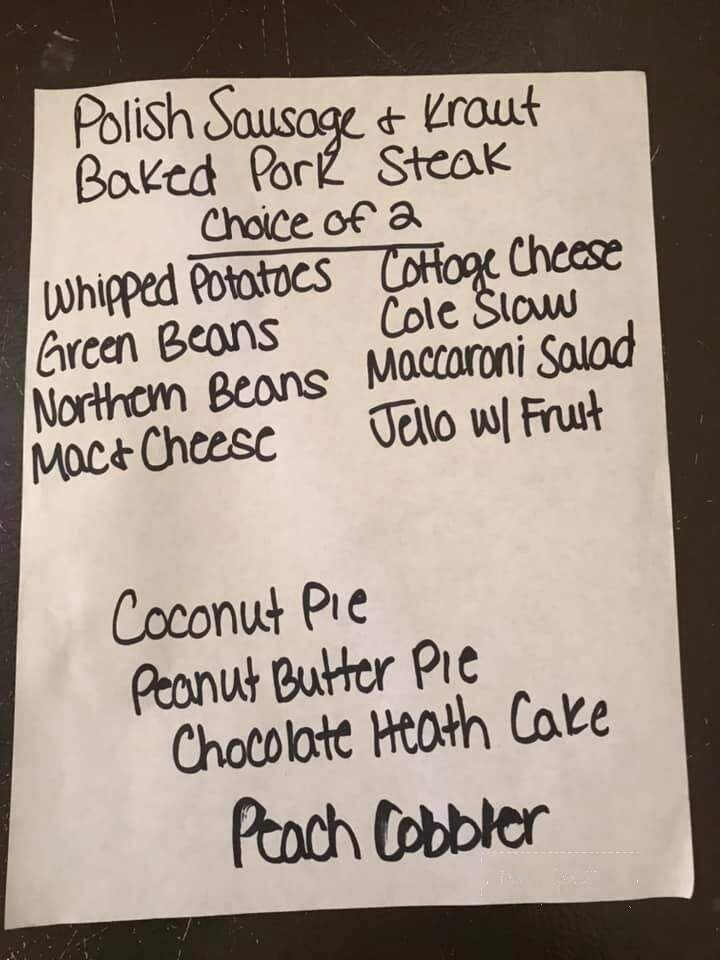 Polish Sausage & Kraut
Baked Pork Steak
Choice of 2
Whipped Potatoes
Green Beans
Northern Beans
Mac & Cheese
Cottage Cheese
Cole Slaw
Maccaroni Salad
Jello w/ Fruit
Coconut Pie
Peanut Butter Pie
Chocolate Heath Cake
Peach Cobbler